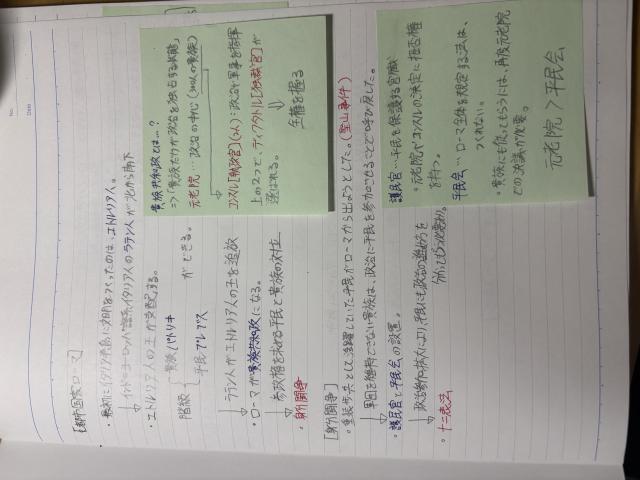 [都市国家ローマ]
・最初にイタリア半島に文明をつくったのは、エトルリア人。
↓インド=ヨーロッパ語系イタリア人のラテン人が北から南下
・エトルリア人の王が支配する。
階級 貴族 パトリキ
平民 プレブス
ができる。
↓ラテン人がエトルリア人の王を追放
・ローマが貴族共和政になる。
↓参政権を求める平民と貴族の対立
・身分闘争
貴族共和政とは…?
⇒「貴族だけが政治を独占する状態」
元老院…政治の中心(300人の貴族)
コンスル[執政官](2人):政治と軍事を指揮
上の2つで、ディクタトル[独裁官]が
選ばれる。
全権を握る
[身分闘争]
・重装歩兵として活躍していた平民がローマから出ようとした。(聖山事件)
↓軍団を維持できない貴族は、政治に平民を参加させることで呼び戻した。
・護民官と平民会の設置。
↓政治参加拡大により、平民にも政治の進め方を
・十二表法
護民官…平民を保護する官職
・元老院やコンスルの決定に拒否権
を持つ。
平民会…ローマ全体を規定する法は、
つくれない。
・貴族にも従ってもらうには、再度元老院
での決議が必要。
元老院 > 平民会